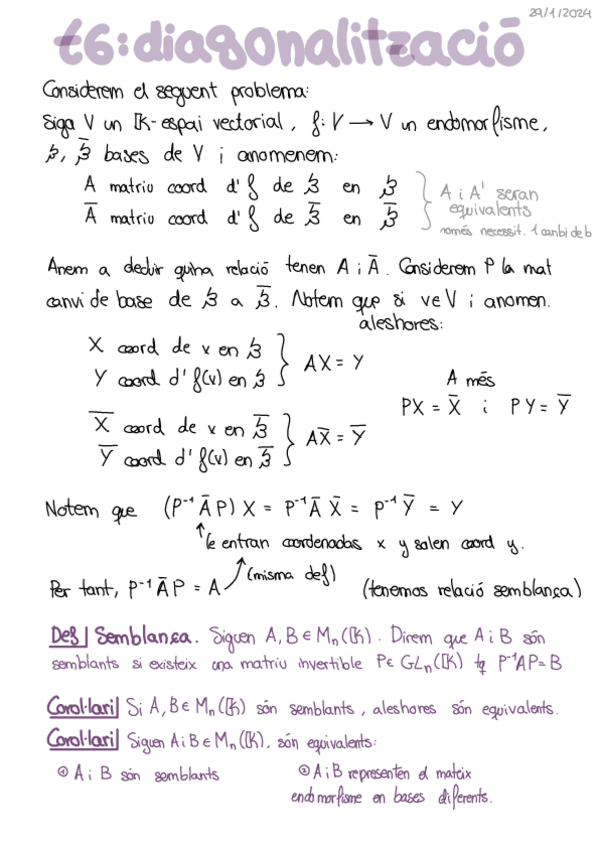 29/1/2024
t6: diagonalització
Considerem el seguent problema:
Siga V un K-espai vectorial, f: V → V un endomorfisme,
β, β̅ bases de V i anomenem:
A matriu coord d' f de β en β
A̅ matriu coord d' f de β̅ en β̅
A i A' seran
equivalents
només necessit. 1 canbi de b
Anem a deduir quina relació tenen A i A̅. Considerem P la mat
canvi de base de β a β̅. Notem que si v∈V i anomen.
aleshores:
X coord de v en β
Y coord d' f(v) en β
AX = Y
X̅ coord de v en β̅
Y̅ coord d' f(v) en β̅
A̅X̅ = Y̅
A més
PX = X̅ i PY = Y̅
Notem que (P⁻¹ A̅ P) X = P⁻¹ A̅ X̅ = P⁻¹ Y̅ = Y
le entran coordenadas x y salen coord y.
(misma def)
Per tant, P⁻¹ A̅ P = A (tenemos relació semblança)
Def| Semblança. Siguen A, B ∈ Mn(K). Direm que A i B són
semblants si existeix una matriu invertible P∈ GLn(K) tq P⁻¹AP=B
Corol·lari| Si A, B ∈ Mn(K) són semblants, aleshores són equivalents.
Corol·lari| Siguen A i B ∈ Mn(K), són equivalents:
① A i B són semblants ② A i B representen el mateix
endomorfisme en bases diferents.